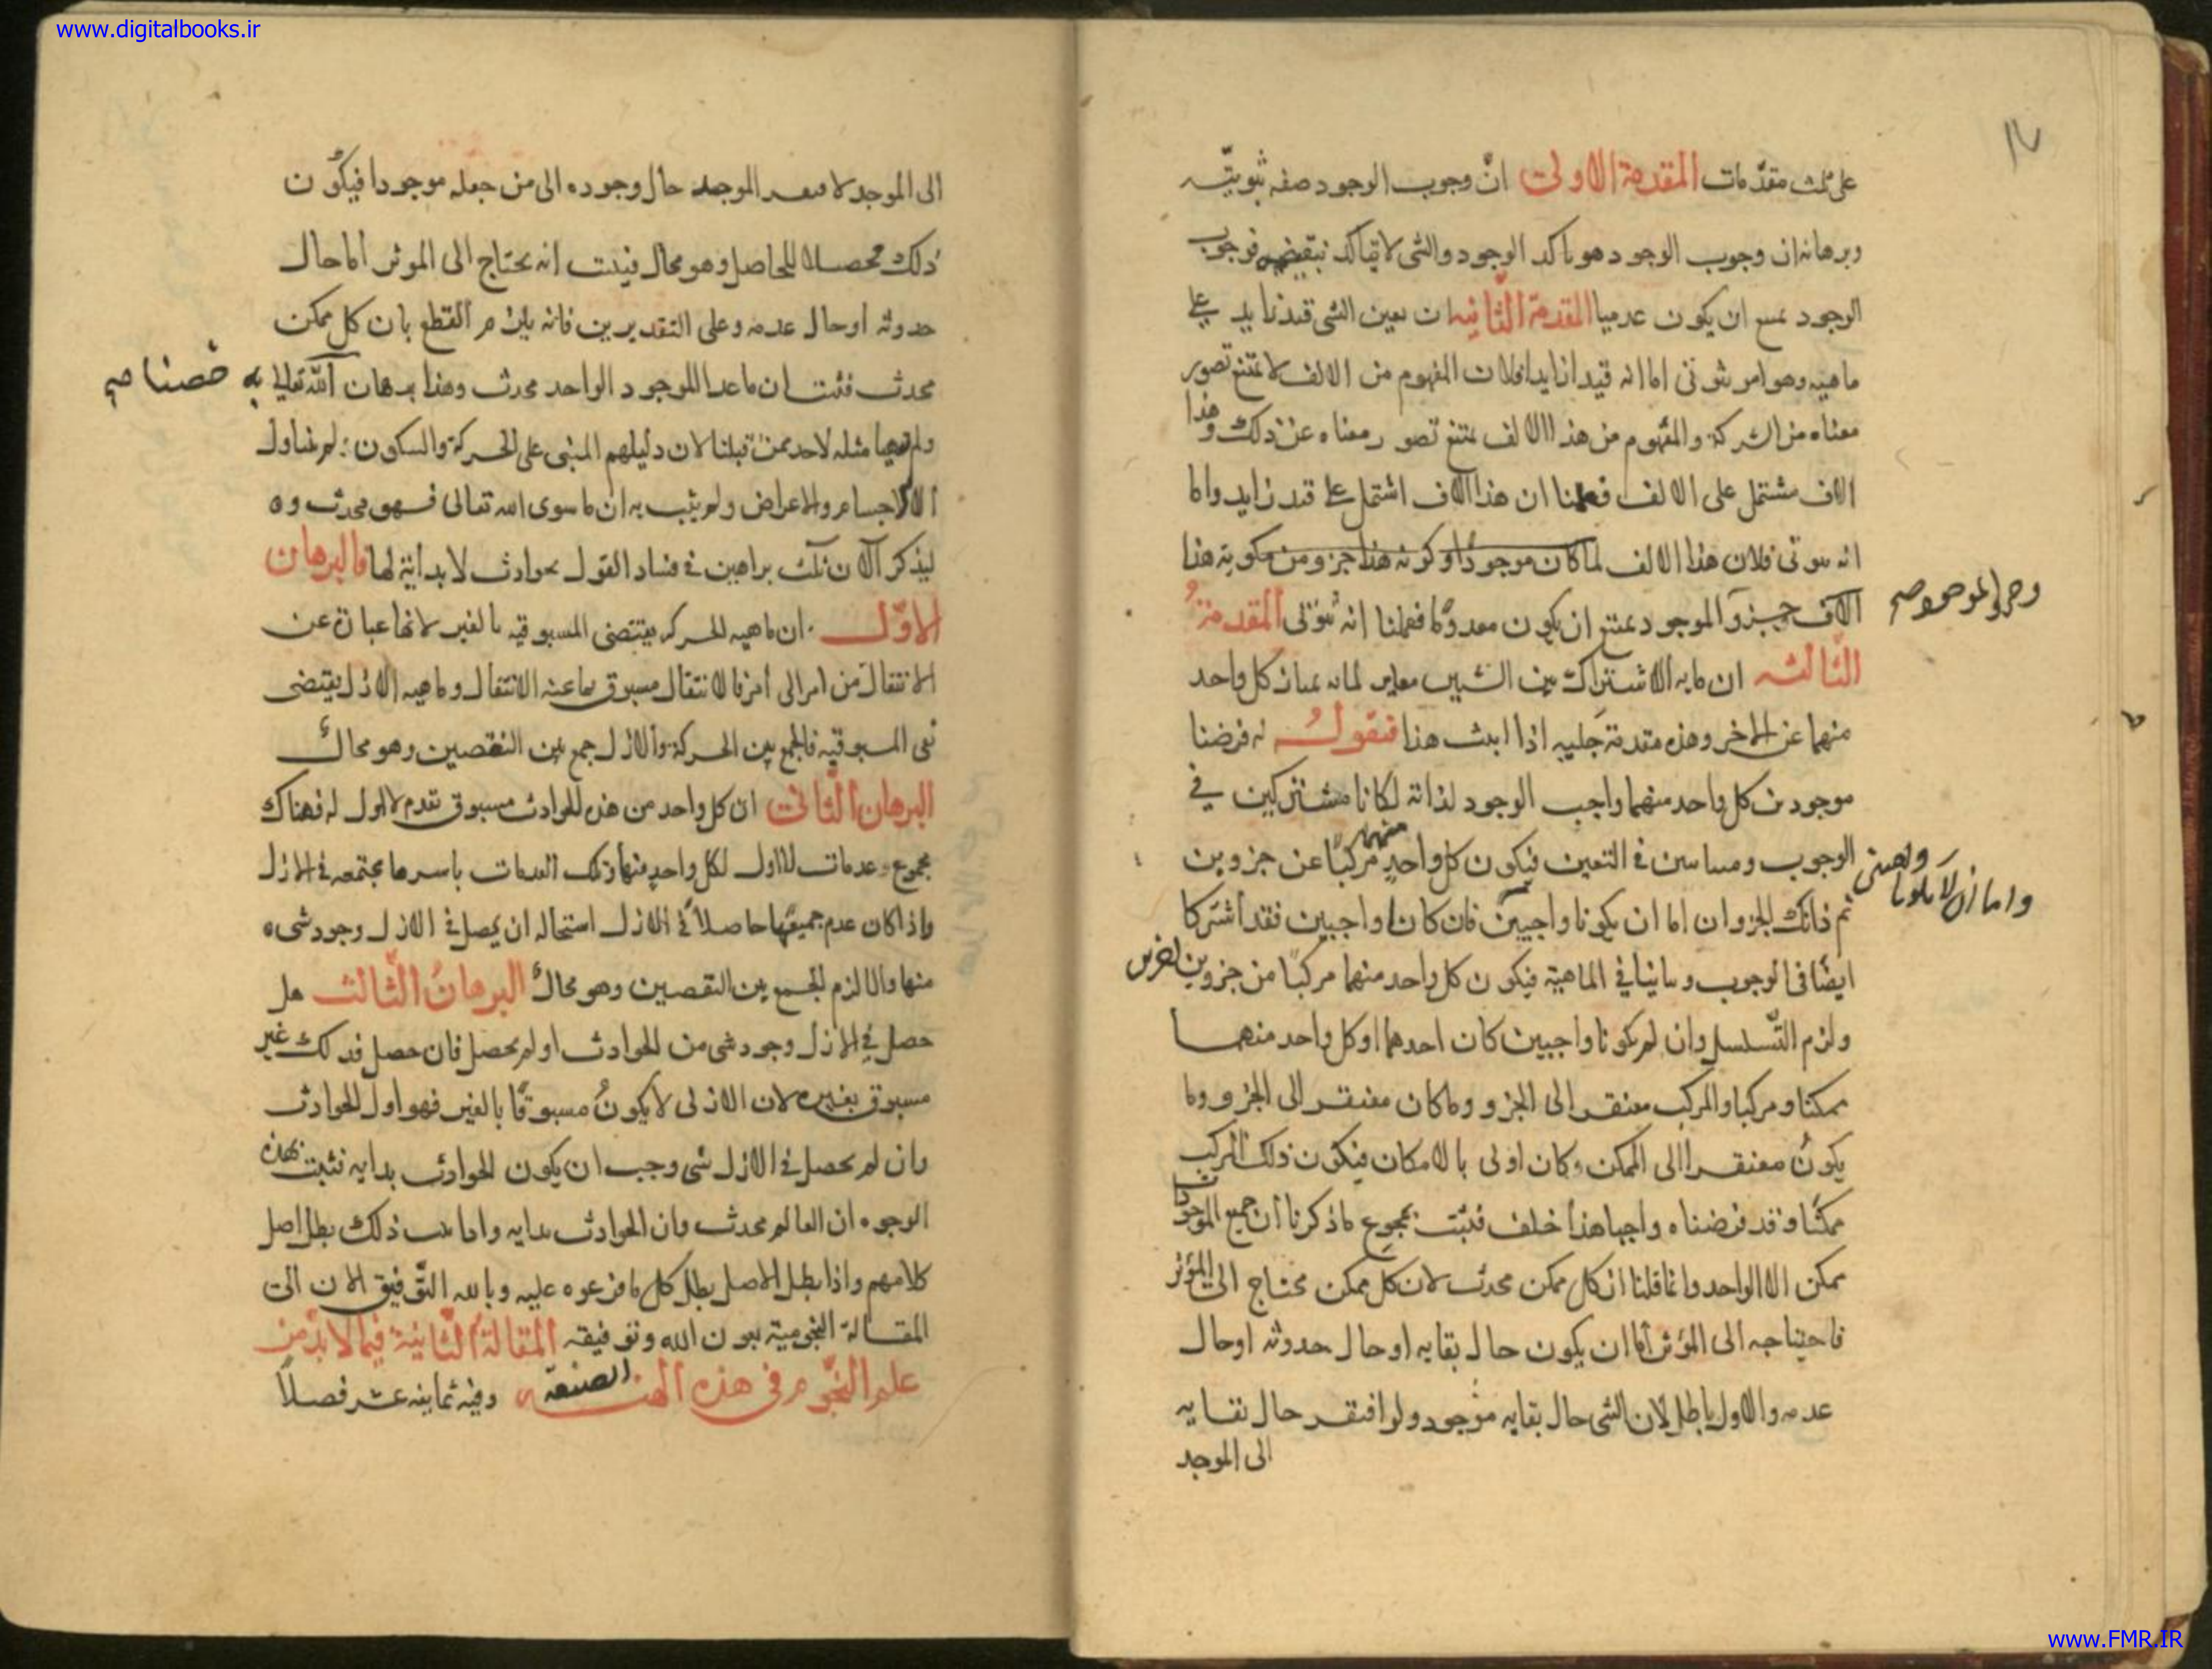 www.digitalbooks.ir
على ثلث مقدّمات المقدمة الاولى انّ وجوب الوجود صفه ثبوتيّه
وبرهانه ان وجوب الوجود هو تاكد الوجود والشى لا يتاكد بنقيضه فوجوب
الوجود يمتنع ان يكون عدميا المقدمة الثّانيه ان تعين الشى قيد زايد على
ماهيه وهو امر ثبوتى اما انه قيد زايد فلان المفهوم من الالف لا يمتنع تصور
معناه من الشركة والمفهوم من هذا الالف يمتنع تصور معناه عن ذلك وهذا
الالف مشتمل على الالف فعلمنا ان هذا الالف اشتمل على قيد زايد واما
انه ثبوتى فلان هذا الالف لما كان موجودًا وكونه هذا جزو من مكونة هذا
الالف جزو الموجود يمتنع ان يكون معدومًا فعلمنا انه ثبوتى المقدمةُ
وجزو الموجود صح
الثّالثه ان مابه الاشتراك بين الشيين مغاير لما به يمتاز كل واحد
منهما عن الاخر وهذه مقدمة جليه اذا اثبت هذا فنقولُ لو فرضنا
موجودين كل واحد منهما واجب الوجود لذاته لكانا مشتركين في
الوجوب ومتباينين فى التعين فيكون كل واحدٍ منهما مركبًا عن جزوين
ثم ذانك الجزوان اما ان يكونا واجبين فان كانا واجبين فقد اشتركا
واما ان لا يكونا
ايضًا فى الوجوب وتباينا في الماهية فيكون كل واحد منهما مركبًا من جزوين اخرين
ولزم التّسلسل وان لم يكونا واجبين كان احدهما او كل واحد منهما
ممكنا ومركبا والمركب مفتقر الى الجزو وما كان مفتقر الى الجزو وما
يكونُ مفتقرا الى الممكن وكان اولى بالامكان فيكون ذلك المركب
ممكنًا وقد فرضناه واجبا هذا خلف فثبت بمجوع ما ذكرنا ان جميع الموجودات
ممكن الا الواحد وانما قلنا ان كل ممكن محدث لان كل ممكن محتاج الى المؤثر
فاحتياجه الى المؤثر اما ان يكون حال بقايه او حال حدوثه او حال
عدمه والاول باطل لان الشى حال بقايه موجود ولو افتقر حال بقايه
الى الموجد
الى الموجد لافتقر الموجد حال وجوده الى من جعله موجودا فيكون
ذلك تحصيلا للحاصل وهو محال فثبت انه يحتاج الى الموثر اما حال
حدوثه او حال عدمه وعلى التقديرين فانه يلزم القطع بان كل ممكن
محدث فثبت ان ماعدا الموجود الواحد محدث وهذا برهان اللّه تعالى به
خصنا صح
ولم يتهيا مثله لاحد ممن قبلنا لان دليلهم المبنى على الحركة والسكون لم يتناول
الا الاجسام والاعراض ولم يثبت به ان ما سوى الله تعالى فهو محدث و
ليذكر الان ثلث براهين في فساد القول بحوادث لا بداية لها فالبرهان
الاوّل ان ماهيه الحركه يقتضى المسبوقيه بالغير لانها عبارة عن
الانتقال من امر الى امر فالانتقال مسبوق بما عنه الانتقال وماهيه الازل يقتضى
نفى المسبوقيه فالجمع بين الحركة والازل جمع بين النقيضين وهو محالٌ
البرهان الثانى ان كل واحد من هذه الحوادث مسبوق بعدم لا اول له فهناك
مجموع عدمات لا اول لكل واحدٍ منها وتلك العدمات باسرها مجتمعه فى الازل
واذا كان عدم جميعها حاصلاً فى الازل استحاله ان يحصل في الازل وجود شىء
منها والا لزم الجمع بين النقيضين وهو محالٌ البرهانُ الثّالث هل
حصل في الازل وجود شى من الحوادث او لم يحصل فان حصل فذلك غير
مسبوق بغيره لان الازلى لا يكونُ مسبوقًا بالغير فهو اول الحوادث
وان لم يحصل فى الازل شى وجب ان يكون الحوادث بدايه فثبت بهذه
الوجوه ان العالم محدث وان الحوادث بدايه واذا ثبت ذلك بطل اصل
كلامهم واذا بطل الاصل بطل كل ما فرعوه عليه وبالله التّوفيق الان الى
المقالة النجومية بعون الله وتوفيقه المقالةُ الثّانيةُ فيما لابدّ من
علم النّجوم فى هذه الصنعة وفيه ثمانيه عشر فصلاً
www.FMR.IR